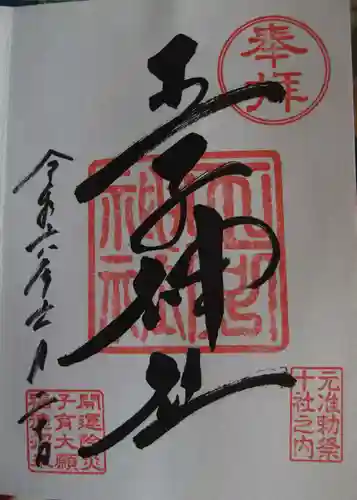 奉拝
王子神社
王子
神社
元准勅祭
十社之内
令和六年
月二十日
開運除災
子育大願